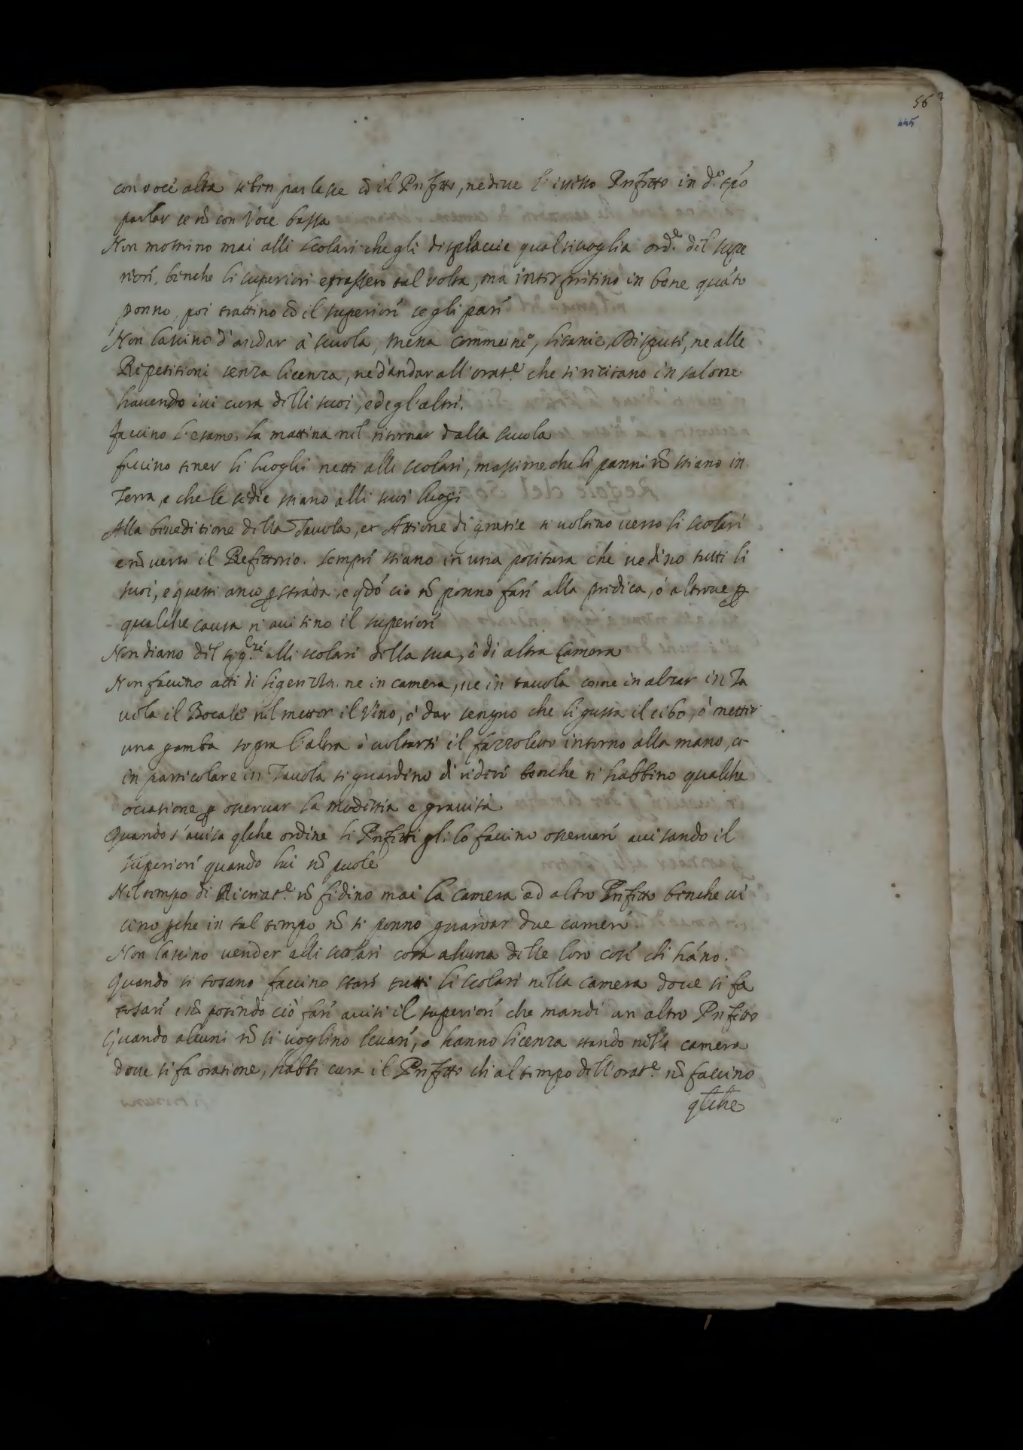 56
225
con voce alta se ben parlasse cō il Prefetto, ne deue l'istesso Prefetto in dº tpō
parlar se nō con Voce bassa
Non mostrino mai alli scolari che gli dispiaccie qual si uoglia ord.e del supe
riore, benche li superiori errassero tal volta, ma interpretino in bene quāto
ponno, poi trattino cō il superiore
Non lascino d'andar à scuola, messa Commune, litanie, Dispute, ne alle
Repetitioni senza licenza, ne d'andar all'orat.e che si recitano in salone
hauendo iui cura delli suoi, e degl'altri.
faccino l'esame la mattina nel ritornar dalla scuola
faccino tener li luoghi netti alli scolari, massime che li panni nō stiano in
Terra, e che le sedie stiano alli suoi luoghi
Alla beneditione della Tauola, et Attione di gratie si uoltino uerso li scolari
e nō uerso il Refettorio. sempre stiano in una positura che uedino tutti li
suoi, e questi anco p strada, e qdō ciò nō ponno fare alla predica, ò altroue p
qualche causa n'auisino il superiore
Non diano del alli scolari della sua, ò di altra Camera
Non faccino atti di ligerezza ne in camera, ne in tauola come in alzar in Ta
uola il Bocale nel metter il Vino, ò dar segno che li gusta il cibo, ò metter
una gamba sopra l'altra ò uoltarsi il fazzoletto intorno alla mano, et
in particolare in Tauola si guardino di ridere benche n'habbino qualche
occasione p osseruar la modestia e grauità
Quando s'auisa qlche ordine li Prefetti gli lo faccino osseruare auisando il
superiore quando lui nō puole
Nel tempo di Ricreat.e nō fidino mai la camera ad altro Prefetto benche ui
cino pche in tal tempo nō si ponno guardar due camere
Non lascino uender alli scolari cosa alcuna delle loro cose ch' hāno.
Quando si tosano faccino stare tutti li scolari nella camera doue si fa
tosare, e nō potendo ciò fare auisi il superiore che mandi un altro Prefetto
Quando alcuni nō si uoglino leuare, o hanno licenza stando nella camera
doue si fa oratione, habbi cura il Prefetto ch'al tempo dell'orat.e nō faccino
qlche